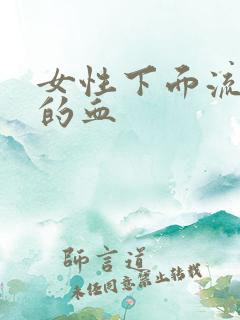 女性下而流
的血
師言道
未经同意禁止转载